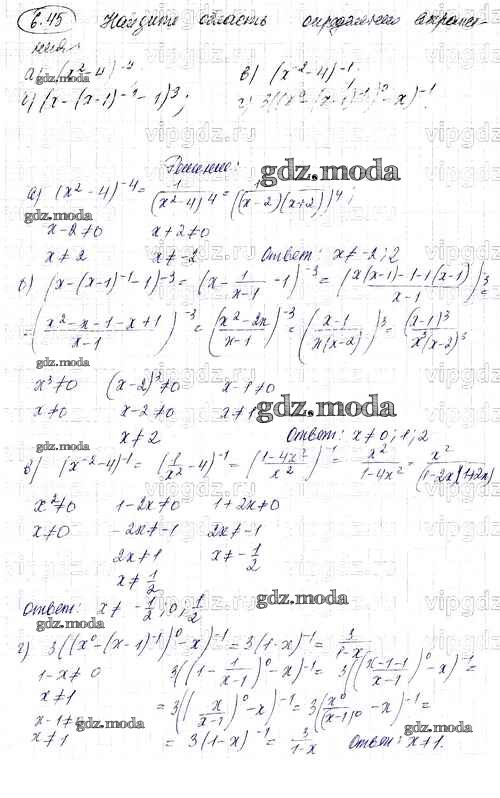 6.45 Найдите область определения выражения:
а) (x²-4)⁻⁴ в) (x⁻²-4)⁻¹
б) (x-(x-1)⁻¹-1)⁻³; г) 3((x⁰-(x-1)⁻¹)⁰-x)⁻¹.
Решение:
gdz.moda
а) (x²-4)⁻⁴ = 1/(x²-4)⁴ = 1/((x-2)(x+2))⁴;
gdz.moda
x-2≠0 x+2≠0
x≠2 x≠-2 Ответ: x≠-2;2
б) (x-(x-1)⁻¹-1)⁻³ = (x - 1/(x-1) -1)⁻³ = ((x(x-1)-1-1(x-1))/(x-1))⁻³ =
= ((x²-x-1-x+1)/(x-1))⁻³ = ((x²-2x)/(x-1))⁻³ = ((x-1)/(x(x-2)))³ = (x-1)³/(x³(x-2)³)
gdz.moda
x³≠0 (x-2)³≠0 x-1≠0
x≠0 x-2≠0 x≠1 gdz.moda
x≠2 Ответ: x≠0;1;2
gdz.moda
в) (x⁻²-4)⁻¹ = (1/x² -4)⁻¹ = ((1-4x²)/x²)⁻¹ = x²/(1-4x²) = x²/((1-2x)(1+2x))
x²≠0 1-2x≠0 1+2x≠0
x≠0 -2x≠-1 2x≠-1
2x≠1 x≠-1/2
x≠1/2
gdz.moda
Ответ: x≠ -1/2;0;1/2
gdz.moda
г) 3((x⁰-(x-1)⁻¹)⁰-x)⁻¹ = 3(1-x)⁻¹ = 3/(1-x)
1-x≠0 3((1 - 1/(x-1))⁰-x)⁻¹ = 3(((x-1-1)/(x-1))⁰-x)⁻¹ =
x≠1 = 3((x/(x-1))⁰-x)⁻¹ = 3(x⁰/(x-1)⁰ -x)⁻¹ =
x-1≠0 gdz.moda gdz.moda
x≠1 = 3(1-x)⁻¹ = 3/(1-x) Ответ: x≠1.
vipgdz.ru